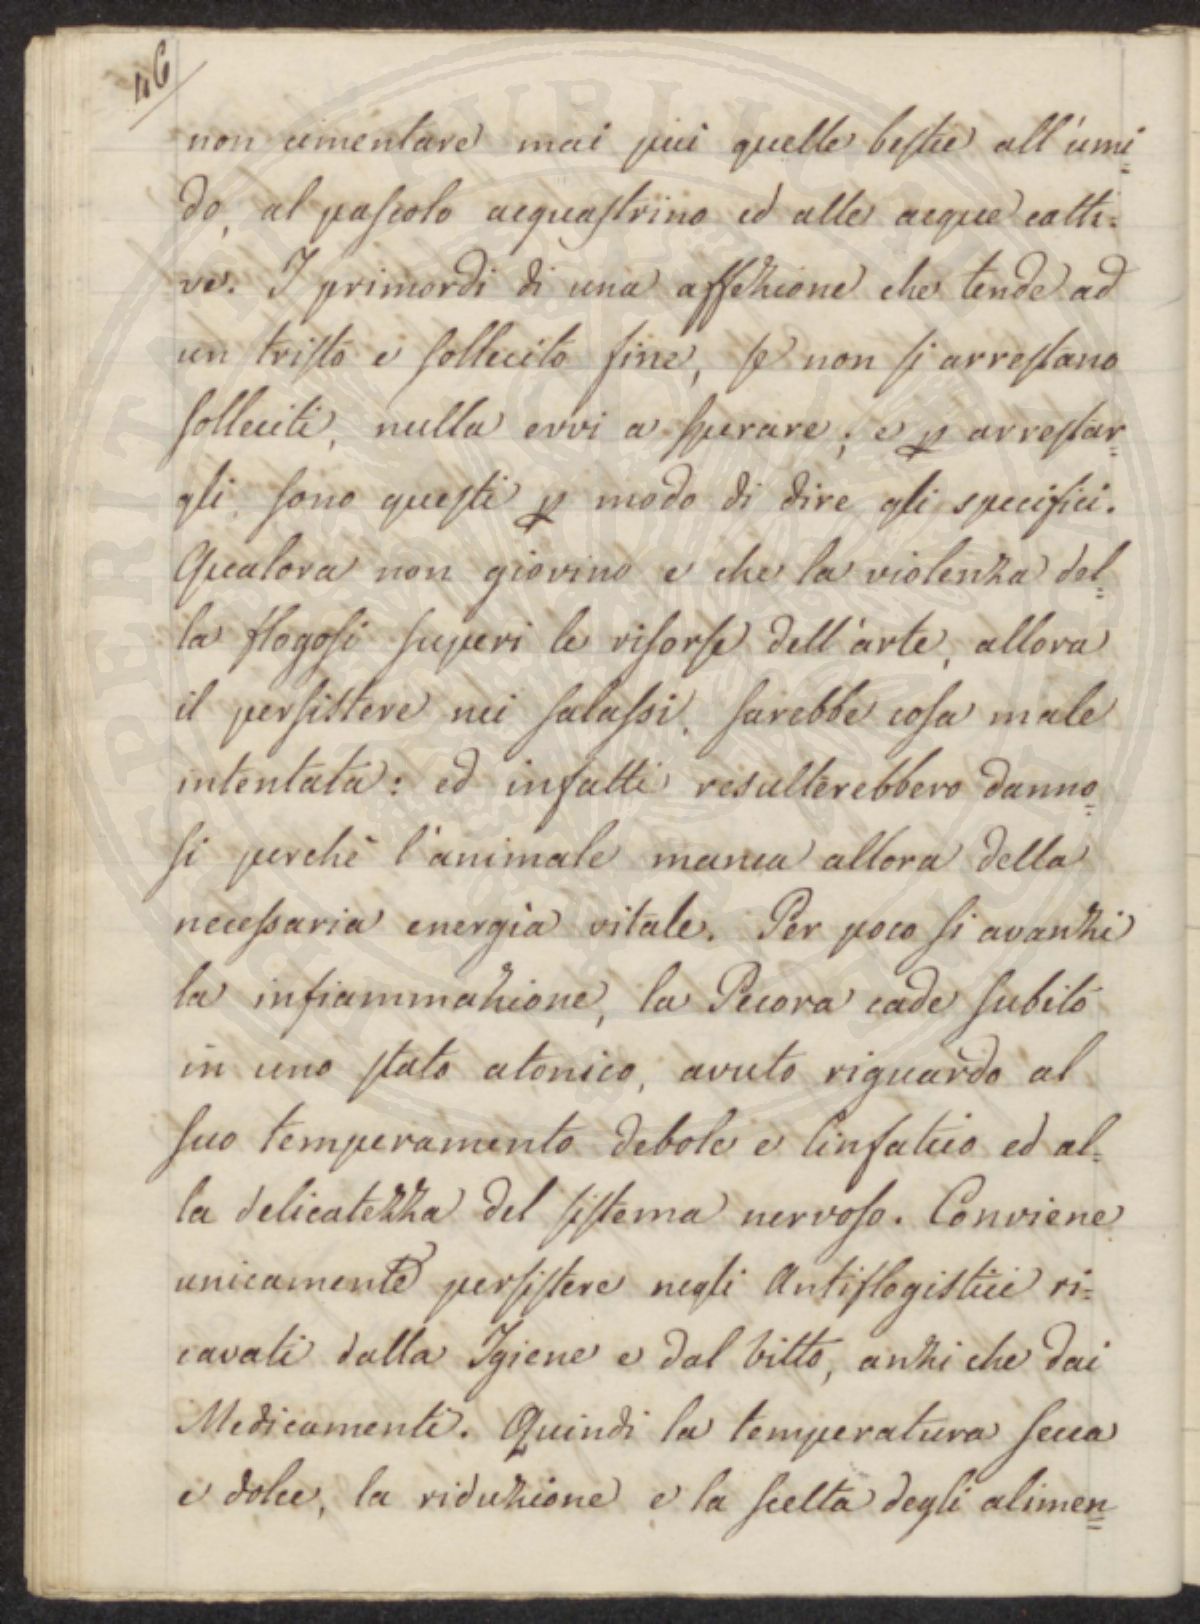 46
non cimentare mai piu quelle bestie all'umi=
do, al pascolo acquastrino ed alle acque catti=
ve. I primordi di una affezione che tende ad
un tristo e sollecito fine, se non si arrestano
solleciti, nulla evvi a sperare; e p arrestar=
gli sono questi p modo di dire gli specifici.
Qualora non giovino e che la violenza del=
la flogosi superi le risorse dell'arte, allora
il persistere nei salassi, sarebbe cosa male
intentata: ed infatti resulterebbero danno=
si perchè l'animale manca allora della
necessaria energia vitale. Per poco si avanzi
la infiammazione, la Pecora cade subito
in uno stato atonico, avuto riguardo al
suo temperamento debole e linfatico ed al=
la delicatezza del sistema nervoso. Conviene
unicamente persistere negli Antiflogistici ri=
cavati dalla Igiene e dal vitto, anzi che dai
Medicamenti. Quindi la temperatura secca
e dolce, la riduzione e la scelta degli alimen=